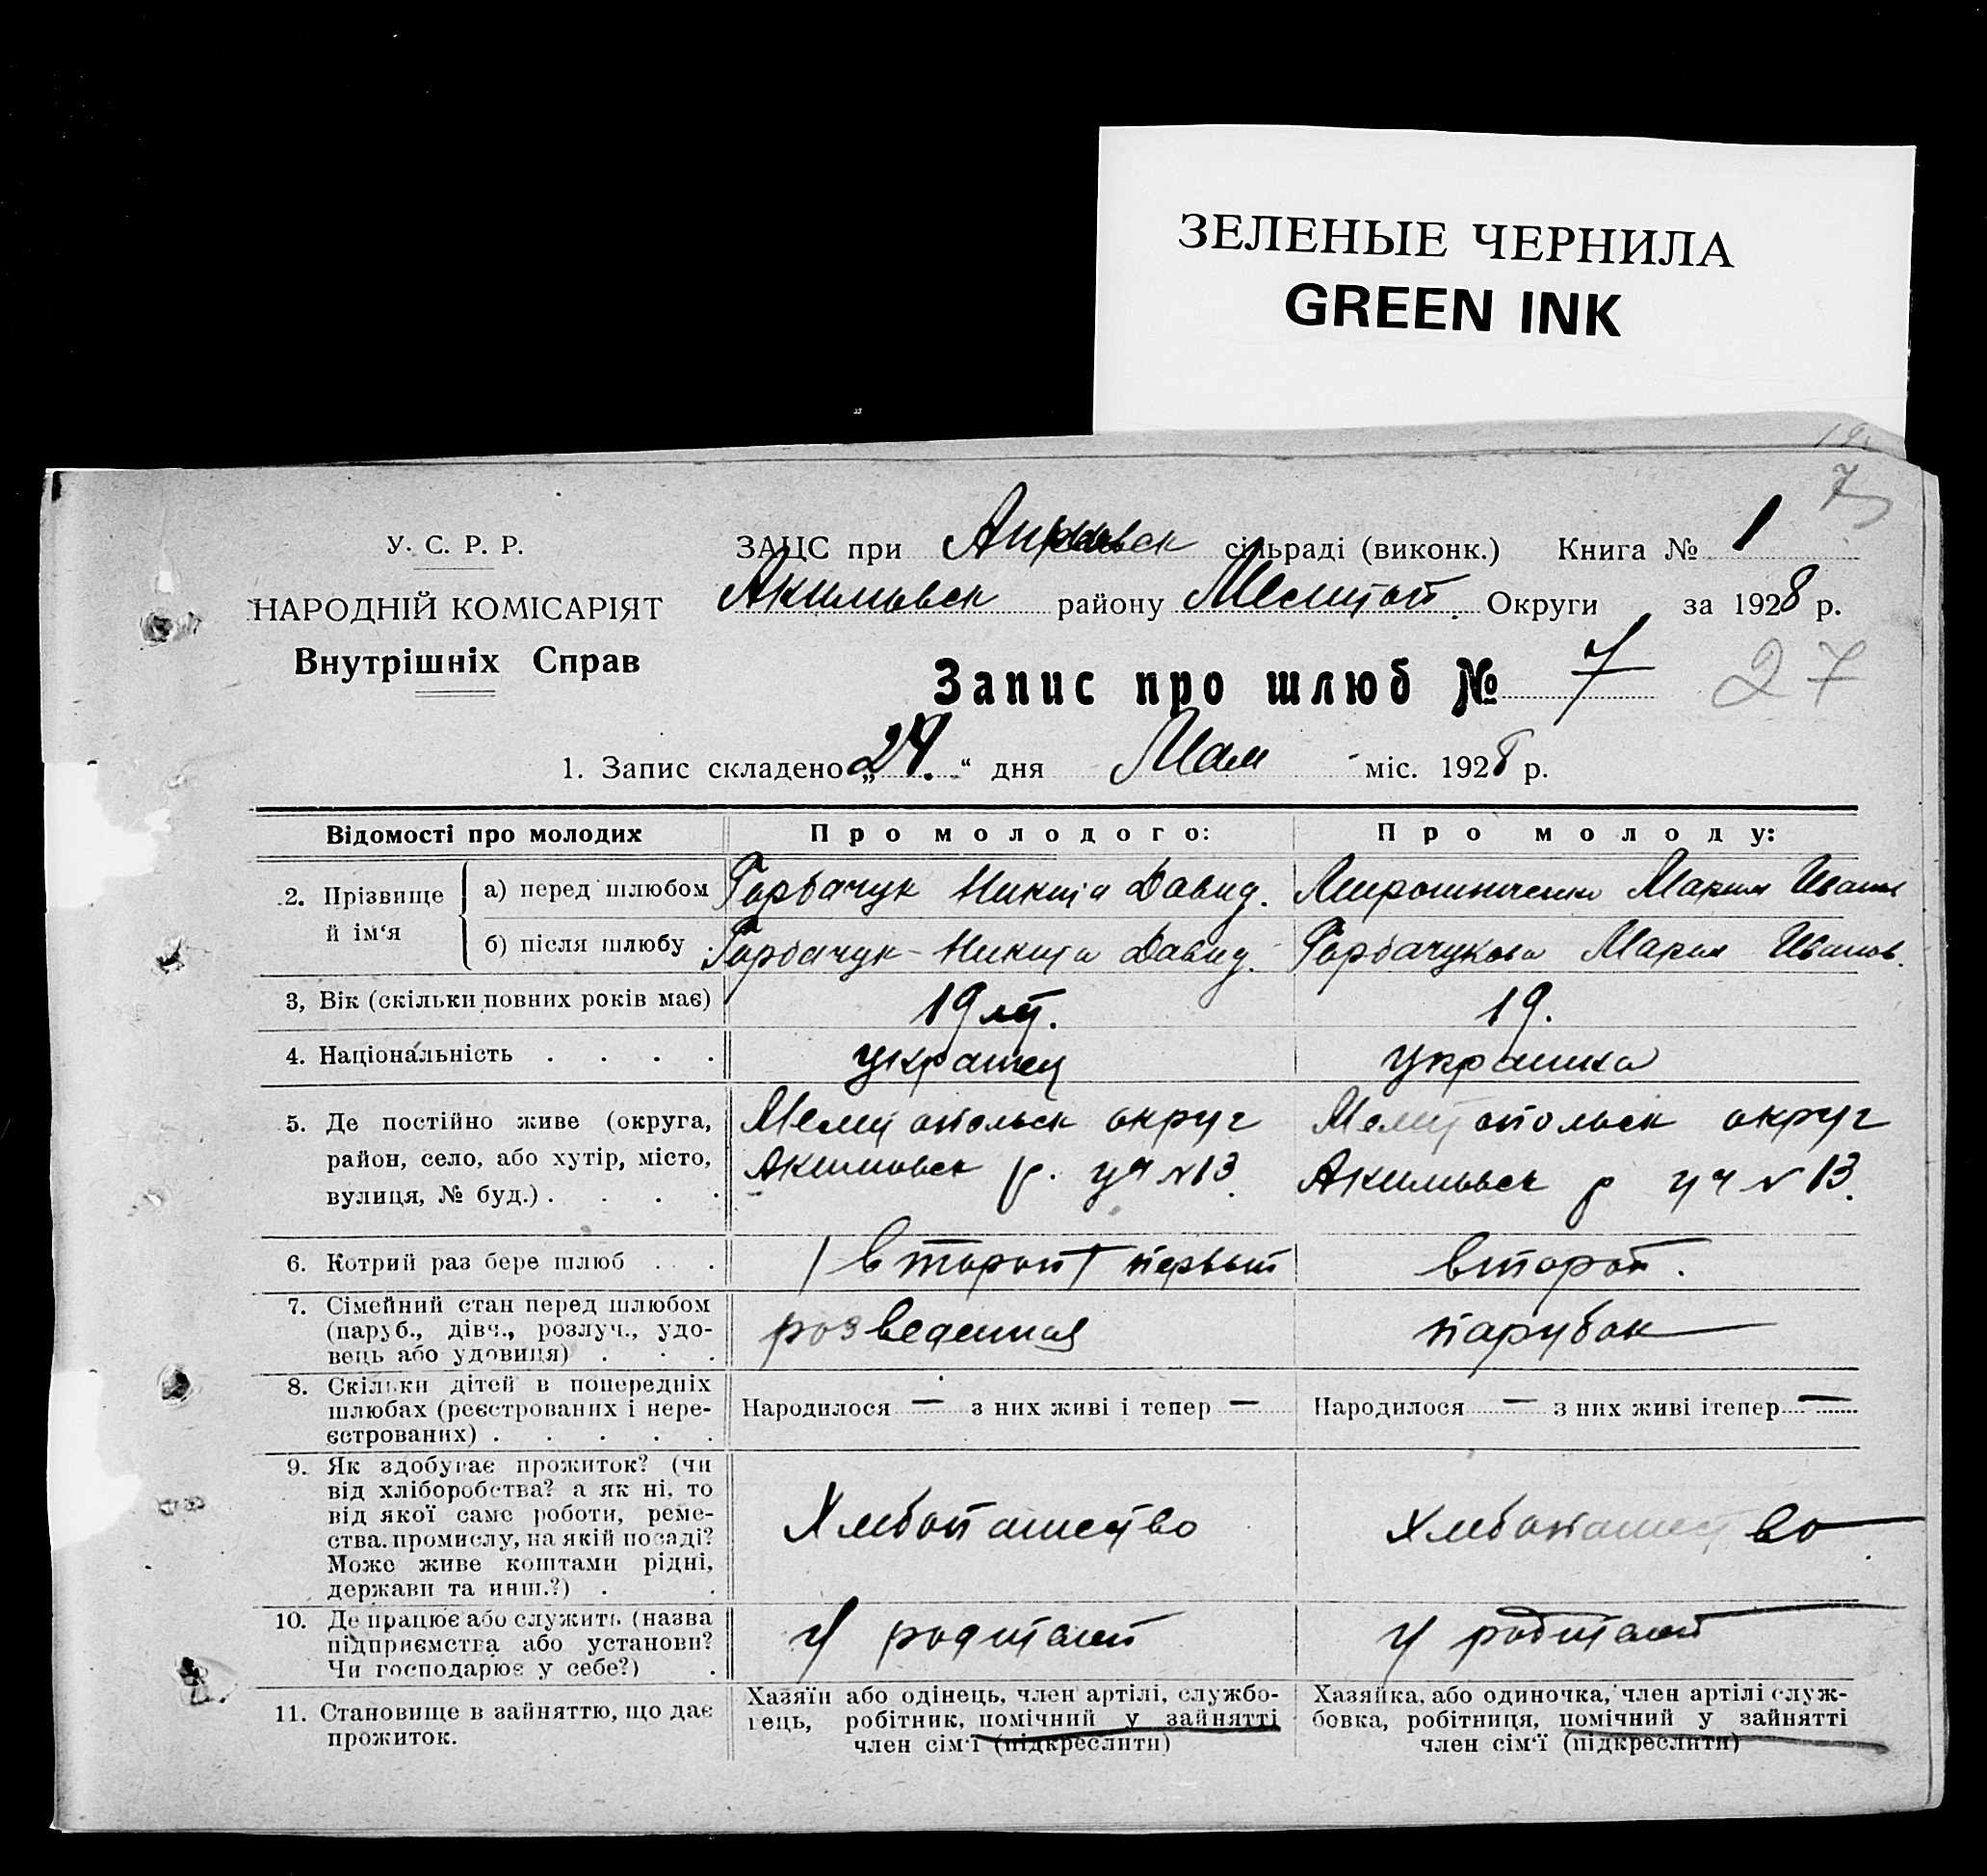 ЗЕЛЕНЫЕ ЧЕРНИЛА
GREEN INK
7
У. С. Р. Р.
НАРОДНІЙ КОМІСАРІЯТ
Внутрішніх Справ
ЗАЦС при сільраді (виконк.) Книга № 1
Акимовск району Мелитоп. Округи за 1928 р.
Запис про шлюб № 7 27
1. Запис складено „24.“ дня Мая міс. 1928 р.
Відомості про молодих Про молодого: Про молоду:
2. Прізвище й ім‘я
а) перед шлюбом Горбачук Никита Давид. Мирошниченко Мария Иванов
б) після шлюбу Горбачук - Никита Давид. Горбачукова Мария Иванов.
3, Вік (скільки повних років має) 19 лет. 19.
4. Національність . . . . украинец украинка
5. Де постійно живе (округа, район, село, або хутір, місто, вулиця, № буд.) . . . .
Мелитопольск округ
Акимовск р. уч №13.
Мелитопольск округ
Акимовск р уч №13.
6. Котрий раз бере шлюб . . . второй первый второй.
7. Сімейний стан перед шлюбом
(паруб., дівч., розлуч., удо-
вець або удовиця) . . .
розведенная парубок
8. Скільки дітей в попередніх
шлюбах (реєстрованих і нере-
єстрованих) . . . . .
Народилося — з них живі і тепер — Народилося — з них живі ітепер —
9. Як здобуває прожиток? (чи
від хліборобства? а як ні, то
від якої саме роботи, реме-
ства. промислу, на якій посаді?
Може живе коштами рідні,
держави та инш.?) . .
Хлебопашество Хлебопашество
10. Де працює або служить (назва
підприємства або установи?
Чи господарює у себе?) .
У родителей У родителей
11. Становище в зайняттю, що дає
прожиток.
Хазяїн або одінець, член артілі, службо-
вець, робітник, помічний у зайнятті
член сім‘ї (підкреслити)
Хазяйка, або одиночка, член артілі служ-
бовка, робітниця, помічний у зайнятті
член сім‘ї (підкреслити)